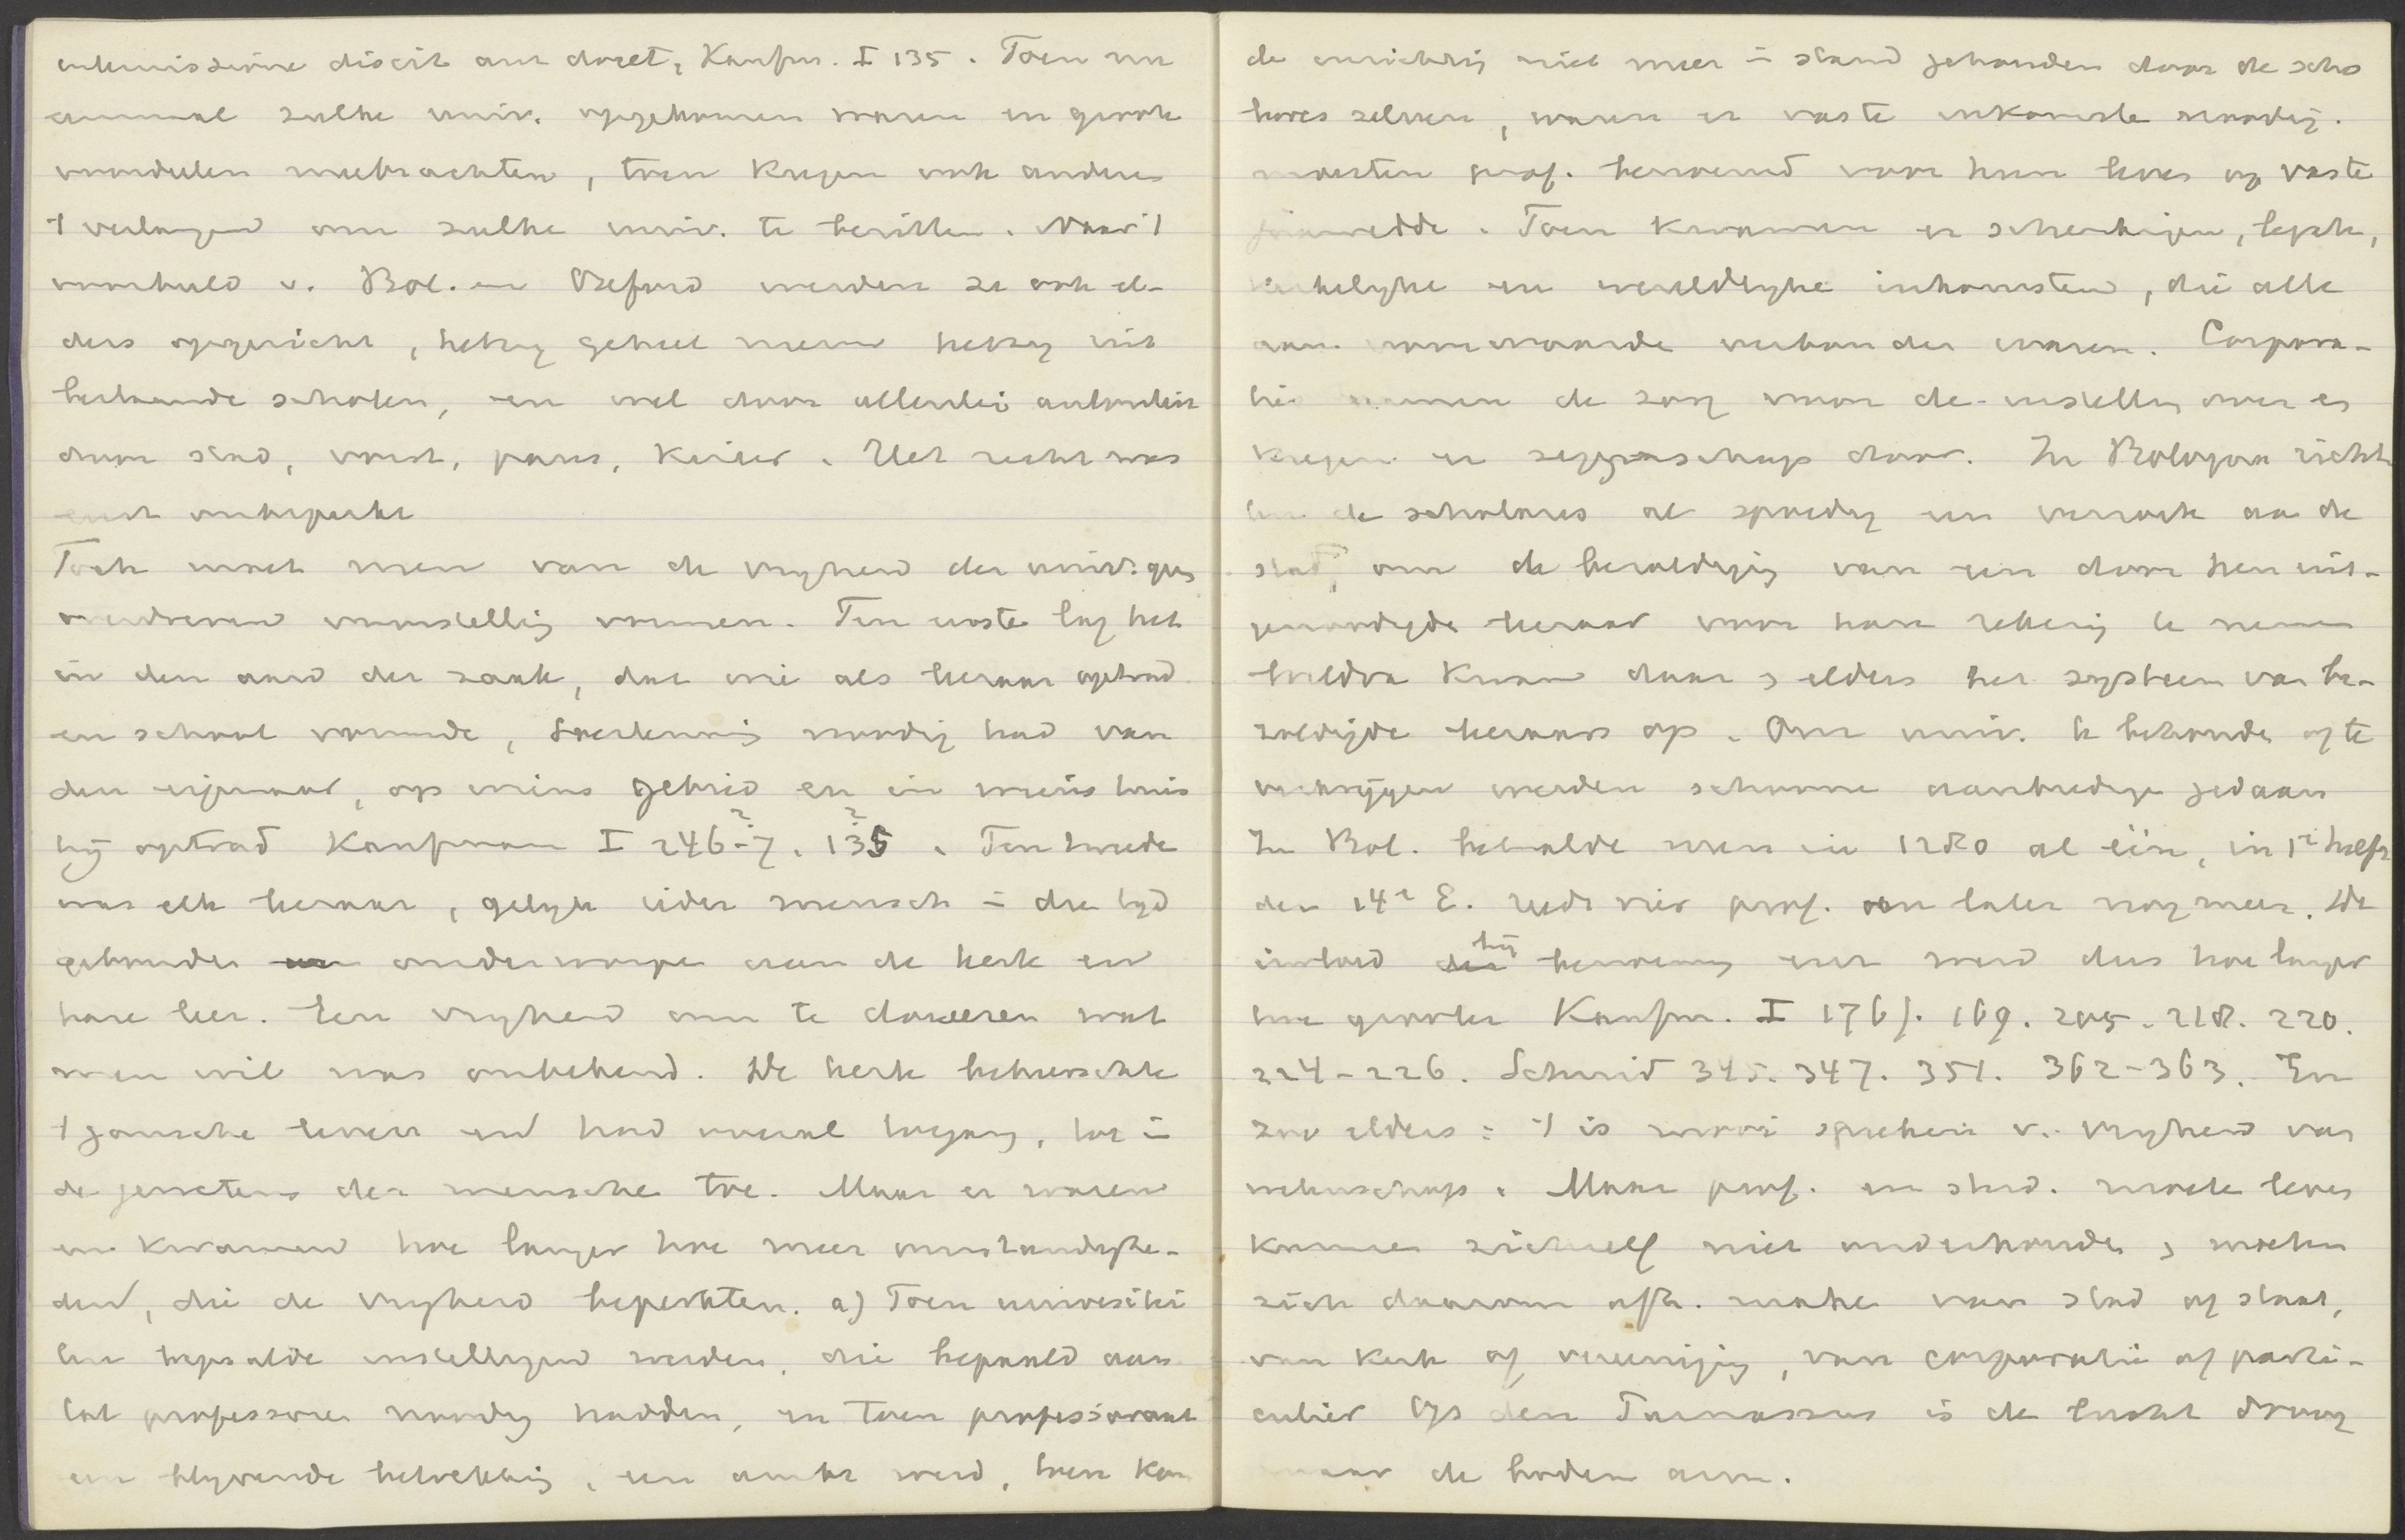 discit aut docet, Kaufm. I 135. Toen nu
eenmaal zulke univ. opgekomen waren en groote
voordeelen meebrachten, toen kregen ook anderen
't verlangen om zulke univ. te bezitten. Naar 't
voorbeeld v. Bol. en Oxford werden ze ook el-
ders opgericht, hetzij geheel nieuw hetzij uit
bestaande scholen, en wel door allerlei autoriteit
door stad, vorst, paus, keizer. Het recht was
eerst onbeperkt
Toch moet men van de vryheid der univ. geen
overdreven voorstelling vormen. Ten eerste lag het
in den aard der zaak, dat wie als leeraar optrad
en school vormde, toestemming noodig had van
den eigenaar, op wiens gebied en in wiens huis
hij optrad Kaufmann I 246-7. 135. Ten tweede
was elk leeraar, gelijk ieder mensch in die tyd
gebonden onderworpen aan de kerk en
hare leer. Een vryheid om te doceeren wat
men wil was onbekend. De kerk beheerschte
't gansche leven en had overal toegang, tot in
de gewetens der menschen toe. Maar er waren
en kwamen hoe langer hoe meer omstandighe-
den, die de vryheid beperkten. a) Toen universitei
ten bepaalde instellingen werden, die bepaald aan
tal professoren noodig hadden, en toen professoraat
een blyvende betrekking, een ambt werd, toen kon
de inrichting niet meer in stand gehouden door de scho
lares zelven, waren er vaste inkomsten noodig.
moesten prof. benoemd voor hun leven op vaste
jaarwedde. Toen kwamen er schenkingen, legaten,
kerkelyke en wereldlyke inkomsten, die alle
aan voorwaarden verbonden waren. Corpora-
ties namen de zorg voor de instelling over en
kregen er zeggenschap door. In Bologna richt
ten de scholares al spoedig een verzoek aan de
stad, om de bezoldiging van een door hen uit-
genoodigde leeraar voor hare rekening te nemen
weldra kwam daar en elders het systeem van be-
zoldigde leeraars op. Om univ. te behouden of te
verkrygen werden schoone aanbiedingen gedaan
In Bol. betaalde men in 1280 al één, in 1e helft
der 14e E. reeds vier prof. en later nog meer. De
invloed bij benoeming enz werd dus hoe langer
hoe grooter Kaufm. I 176f. 169. 205. 218. 220.
224-226. Schmid 345. 347. 351. 362-363. En
zoo elders: 't is mooi spreken v. vryheid van
wetenschap. Maar prof. en stud. moeten leven
kunnen zichzelf niet onderhouden en moeten
zich daarom afh. maken van stad of staat,
van kerk of vereeniging, van corporatie of parti-
culier Op den Parnassus is de lucht droog
maar de bodem arm.